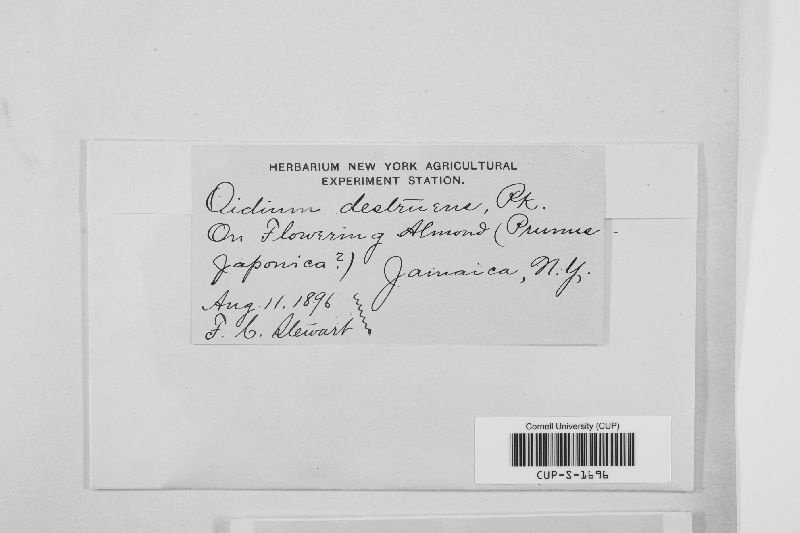 HERBARIUM NEW YORK AGRICULTURAL
EXPERIMENT STATION.
Oidium destruens, Pk.
On Flowering Almond (Prunus
Japonica?) Jamaica, N.Y.
Aug. 11. 1896
F. C. Stewart
Cornell University (CUP)
CUP-S-1696